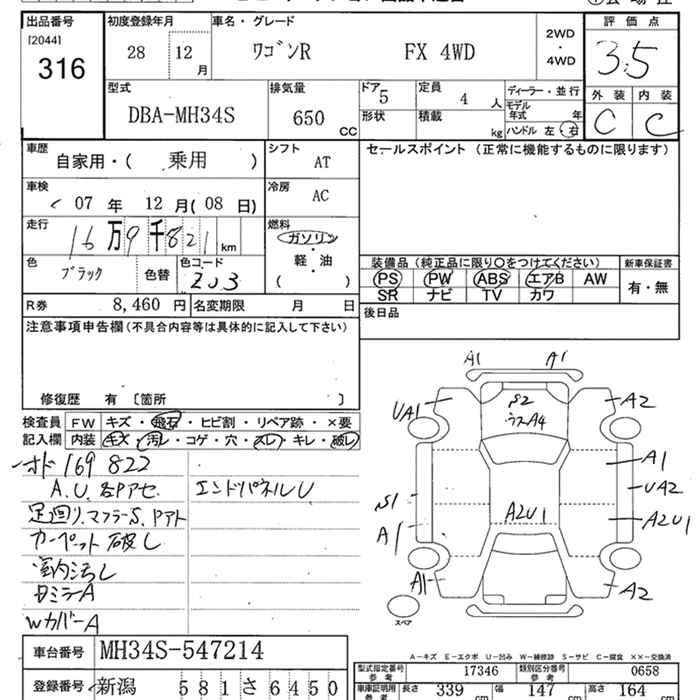 出品番号
[2044]
316
初度登録年月
28 12 月
車名・グレード
ワゴンR FX 4WD
2WD
・
4WD
評価点
3.5
外装 内装
C C
型式
DBA-MH34S
排気量
650 CC
ドア 5
形状
定員 4 人
積載 kg
ディーラー・並行
モデル年式 年
ハンドル 左・右
車歴
自家用・( 乗用 )
シフト
AT
セールスポイント (正常に機能するものに限ります)
車検
07 年 12 月(08 日)
冷房
AC
走行
16万9千821km
燃料
ガソリン
・
軽・油
( )
色
ブラック
色替
色コード
Z03
装備品 (純正品に限り〇をつけてください)
PS PW ABS エアB AW
SR ナビ TV カワ
新車保証書
有・無
R券 8,460 円
名変期限 月 日
後日品
注意事項申告欄(不具合内容等は具体的に記入して下さい)
修復歴 有 〔箇所 〕
検査員
記入欄
FW キズ・飛石・ヒビ割・リペア跡・×要
内装 キズ・汚レ・コゲ・穴・スレ・キレ・破レ
オド 169822
A.U,各Pアセ
足回り,マフラーS,Pアト
カーペット破レ
室内汚レ
Wカバー A
エンドパネルU
A1 A1
UA1
S2
A4
A2
A1
UA2
S1
A1
A2U1
A2U1
A1
A2
スペア
A-キズ E-エクボ U-凹み W-補修跡 S-サビ C-腐食 ××-交換済
車台番号 MH34S-547214
登録番号 新潟 581 さ 6450
型式指定番号 参考 17346
類別区分番号 参考 0658
車庫証明用 参考
長さ 339 cm
幅 147 cm
高さ 164 cm